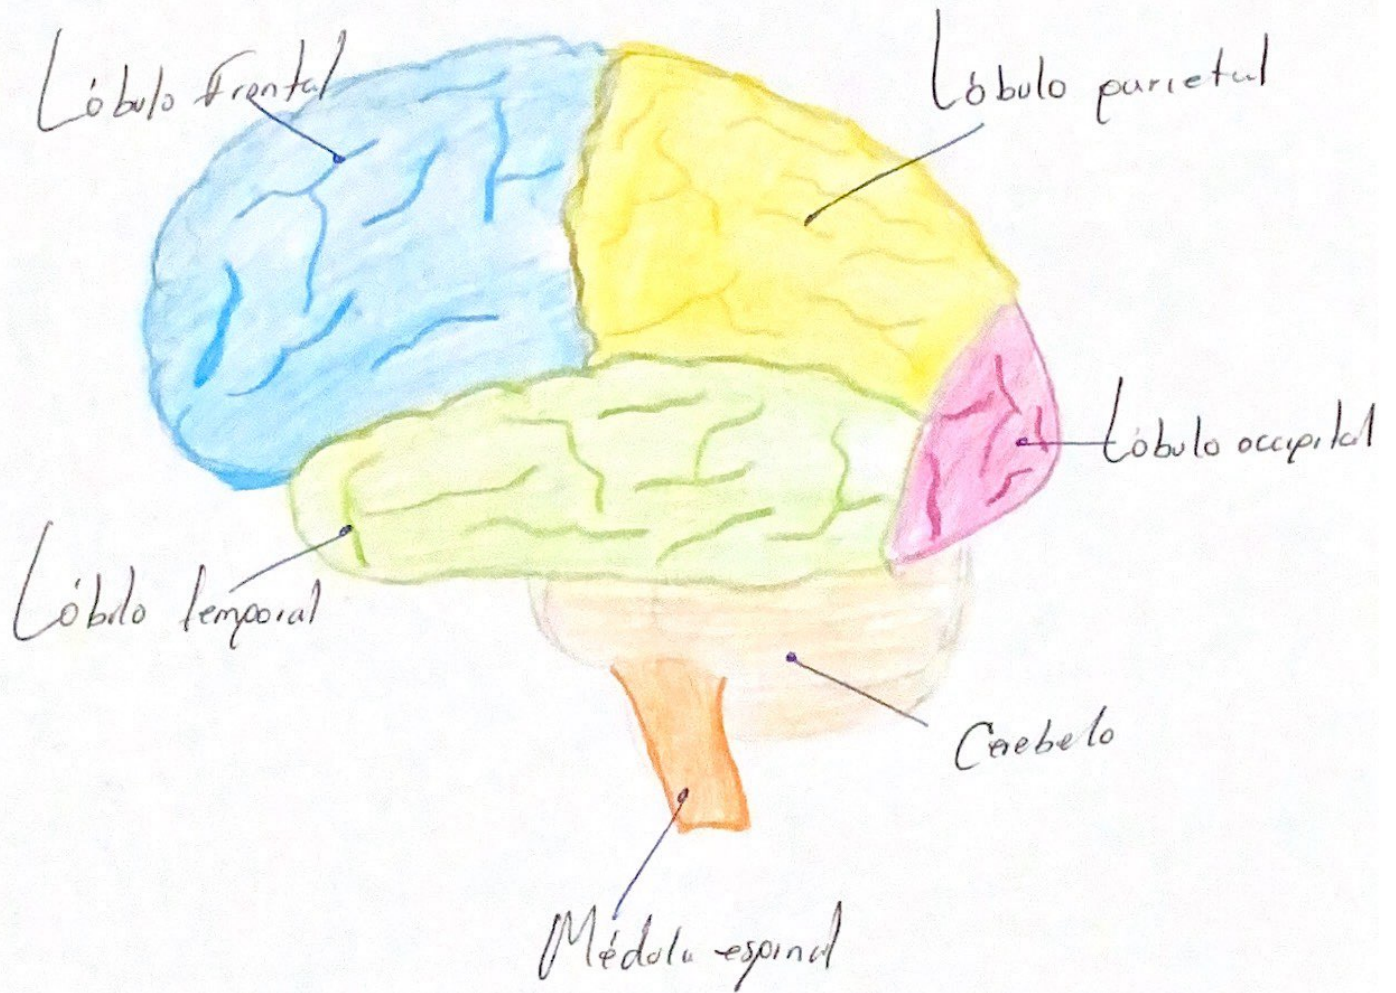 Lóbulo Frontal
Lóbulo parietal
Lóbulo occipital
Lóbulo temporal
Cerebelo
Médula espinal